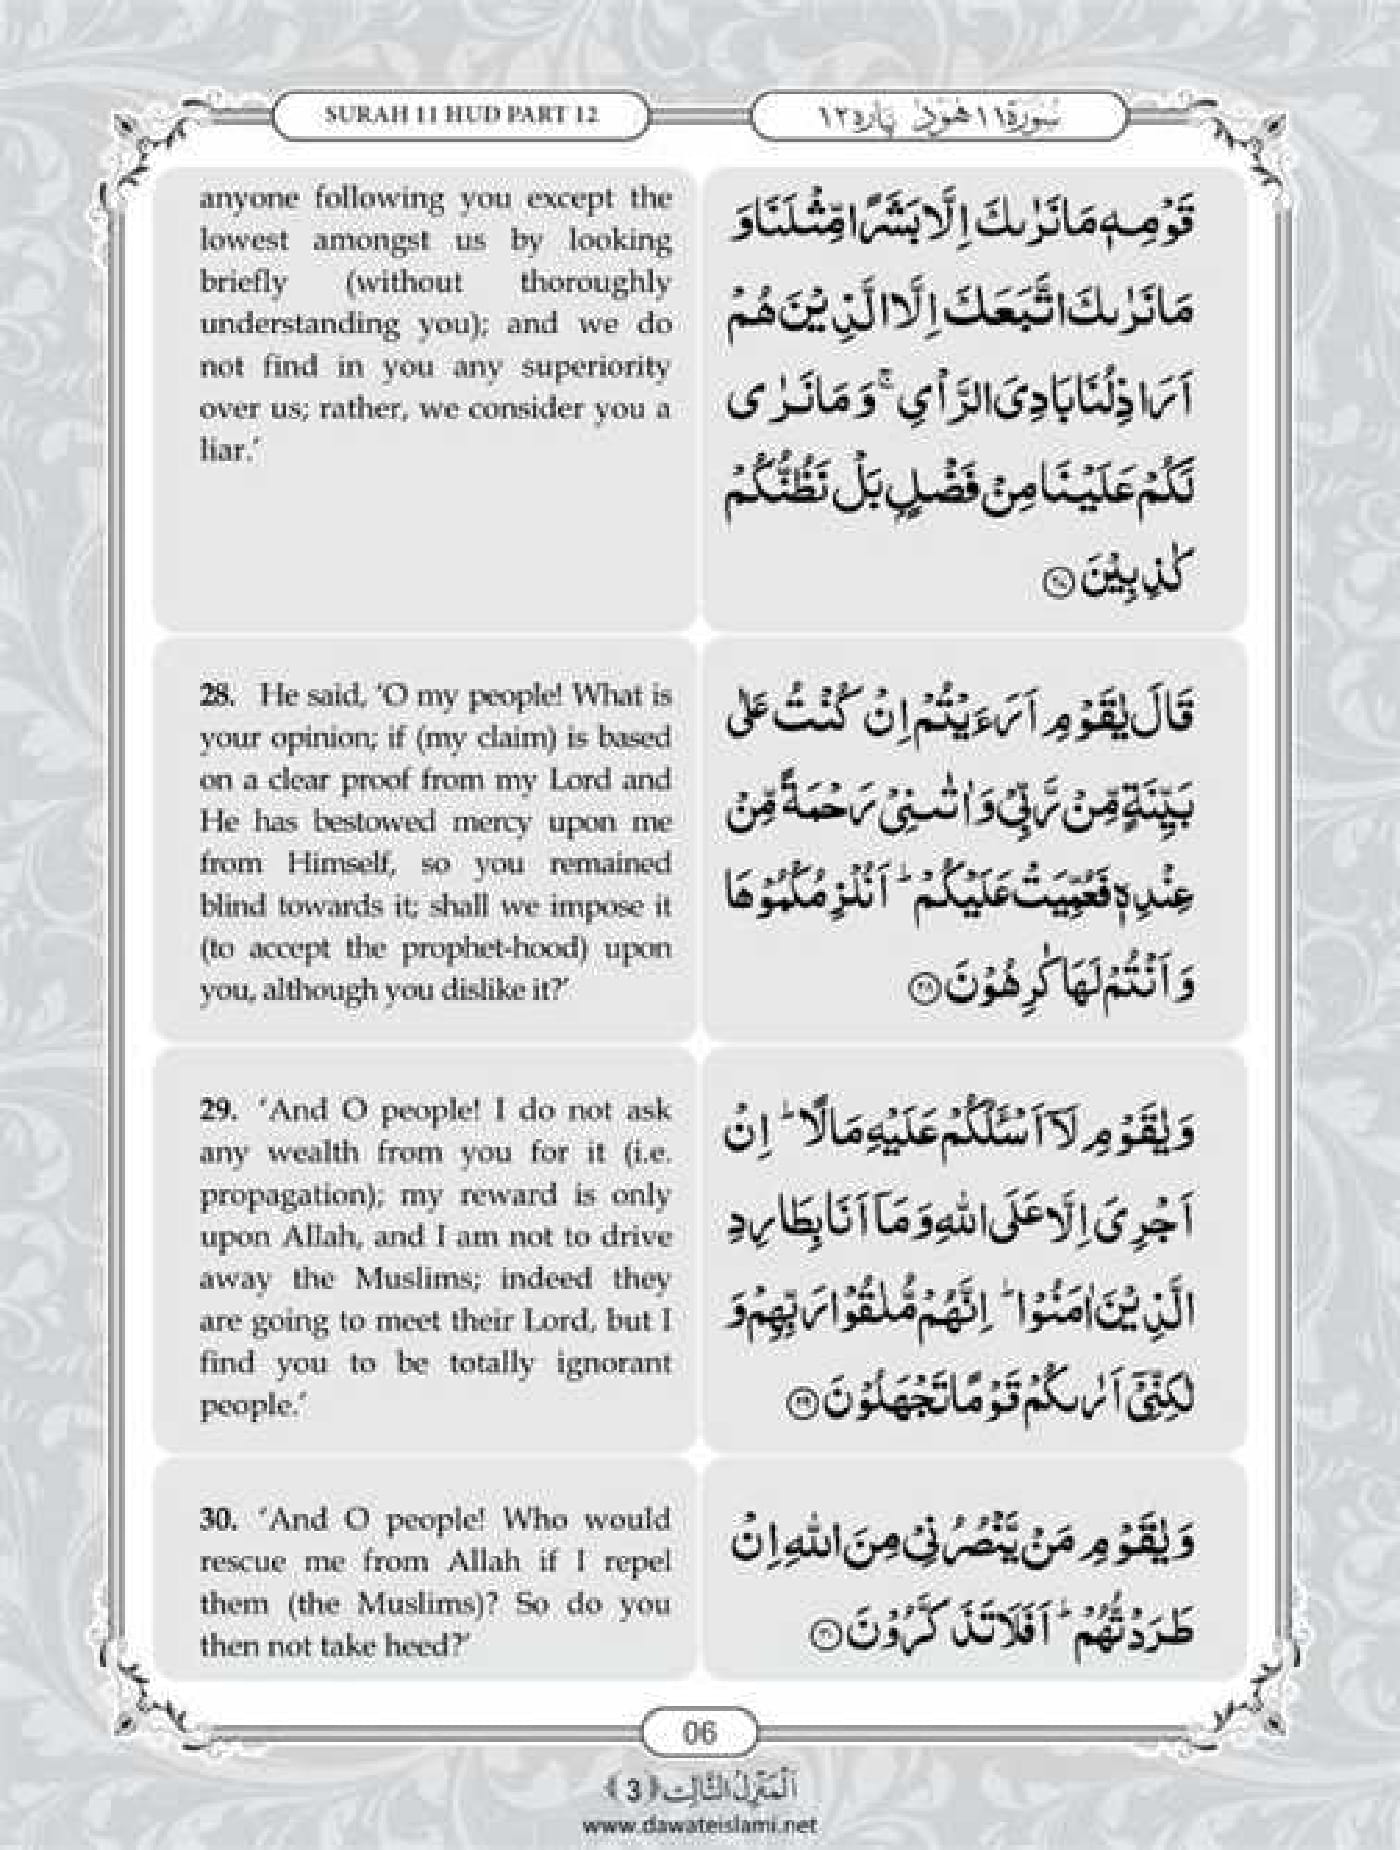 SURAH 11 HUD PART 12
سُوْرَةُ ١١ هُوْد پارہ ١٢
anyone following you except the
lowest amongst us by looking
briefly (without thoroughly
understanding you); and we do
not find in you any superiority
over us; rather, we consider you a
liar.’
قَوْمِهٖ مَا نَرٰىكَ اِلَّا بَشَرًا مِّثْلَنَا وَ
مَا نَرٰىكَ اتَّبَعَكَ اِلَّا الَّذِیْنَ هُمْ
اَرَاذِلُنَا بَادِیَ الرَّاْیِ ۚ وَ مَا نَرٰى
لَكُمْ عَلَیْنَا مِنْ فَضْلٍۭ بَلْ نَظُنُّكُمْ
كٰذِبِیْنَ ﴿۲۷﴾
28. He said, ‘O my people! What is
your opinion; if (my claim) is based
on a clear proof from my Lord and
He has bestowed mercy upon me
from Himself, so you remained
blind towards it; shall we impose it
(to accept the prophet-hood) upon
you, although you dislike it?’
قَالَ یٰقَوْمِ اَرَءَیْتُمْ اِنْ كُنْتُ عَلٰى
بَیِّنَةٍ مِّنْ رَّبِّیْ وَ اٰتٰىنِیْ رَحْمَةً مِّنْ
عِنْدِهٖ فَعُمِّیَتْ عَلَیْكُمْ ؕ اَنُلْزِمُكُمُوْهَا
وَ اَنْتُمْ لَهَا كٰرِهُوْنَ ﴿۲۸﴾
29. ‘And O people! I do not ask
any wealth from you for it (i.e.
propagation); my reward is only
upon Allah, and I am not to drive
away the Muslims; indeed they
are going to meet their Lord, but I
find you to be totally ignorant
people.’
وَ یٰقَوْمِ لَاۤ اَسْـَٔلُكُمْ عَلَیْهِ مَالًا ؕ اِنْ
اَجْرِیَ اِلَّا عَلَى اللّٰهِ وَ مَاۤ اَنَا بِطَارِدِ
الَّذِیْنَ اٰمَنُوْا ؕ اِنَّهُمْ مُّلٰقُوْا رَبِّهِمْ وَ
لٰكِنِّیْۤ اَرٰىكُمْ قَوْمًا تَجْهَلُوْنَ ﴿۲۹﴾
30. ‘And O people! Who would
rescue me from Allah if I repel
them (the Muslims)? So do you
then not take heed?’
وَ یٰقَوْمِ مَنْ یَّنْصُرُنِیْ مِنَ اللّٰهِ اِنْ
طَرَدْتُّهُمْ ؕ اَفَلَا تَذَكَّرُوْنَ ﴿۳۰﴾
06
اَلْمَنْزِلُ الثَّالِث ﴿3﴾
www.dawateislami.net